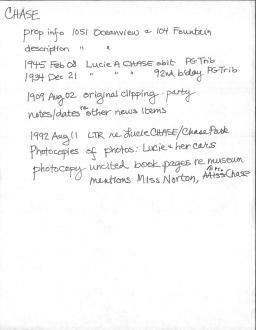 CHASE
prop info 1051 Oceanview & 104 Fountain
description " "
1945 Feb 08 Lucie A CHASE obit PG Trib
1934 Dec 21 " " " 92nd b'day PG Trib
1909 Aug 02 original clipping - party
notes/dates re other news items
1992 Aug 11 LTR re Lucie CHASE/Chase Park
Photocopies of photos: Lucie & her cats
photocopy uncited book pages re museum
mentions Miss Norton, Mrs. Chase